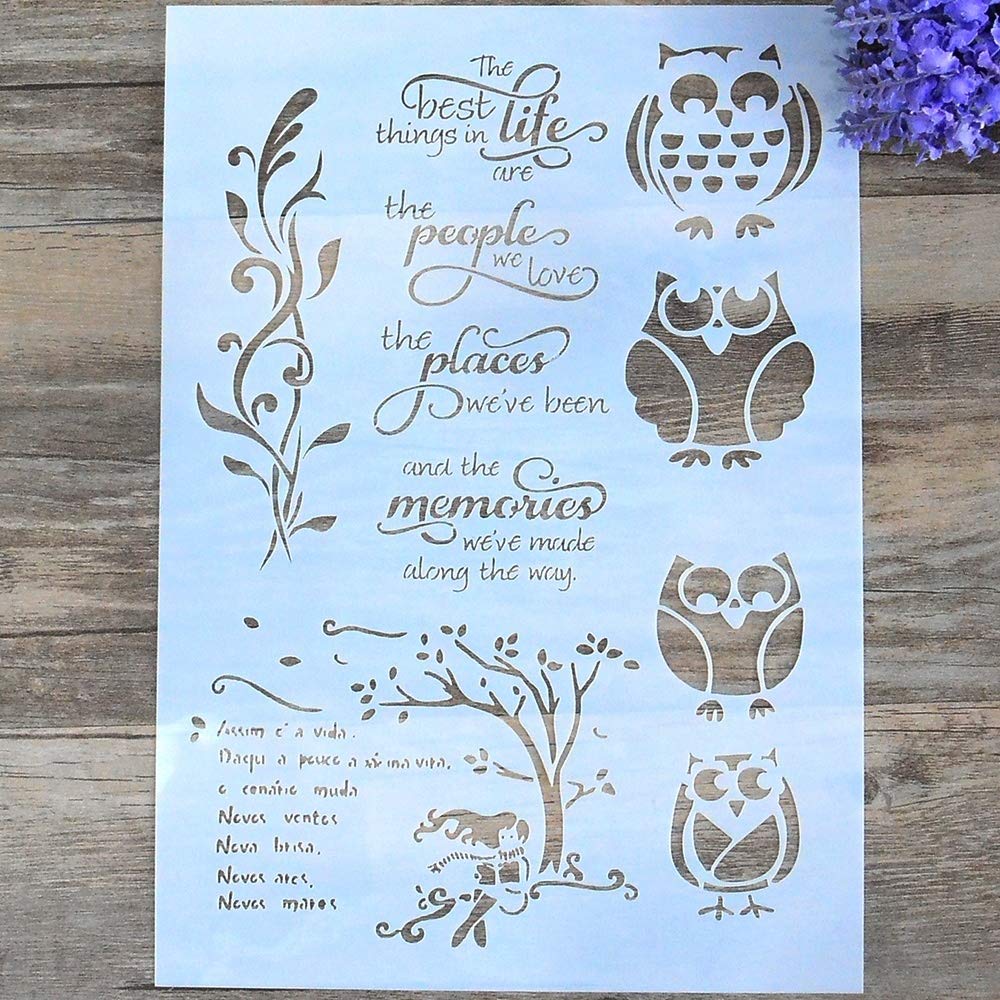 The
best
things in life
are
the
people
we love
the
places
we've been
and the
memories
we've made
along the way.
Assim é a vida.
Daqui a pouco a vira,
o cenário muda
Novos ventos
Nova brisa,
Novos ares,
Novos mares